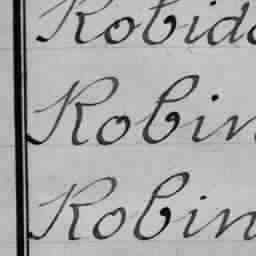 Robido
Robin
Robin